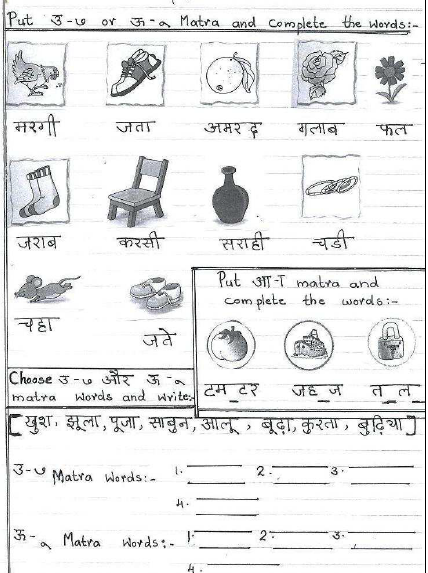 Put उ-ु or ऊ-ू Matra and Complete the words:-
मरगी जता अमरद गलाब फल
जराब करसी सराही चडी
चहा जते
Put आ-ा matra and
complete the words:-
टम_टर जह_ज त_ल_
Choose उ-ु और ऊ-ू
matra words and write:-
[खुश, झूला, पूजा, साबुन, आलू, बूढ़ा, कुरता, बुढ़िया]
उ-ु Matra Words:- 1. ______ 2. ______ 3. ______
4. ______
ऊ-ू Matra Words:- 1. ______ 2. ______ 3. ______
4. ______